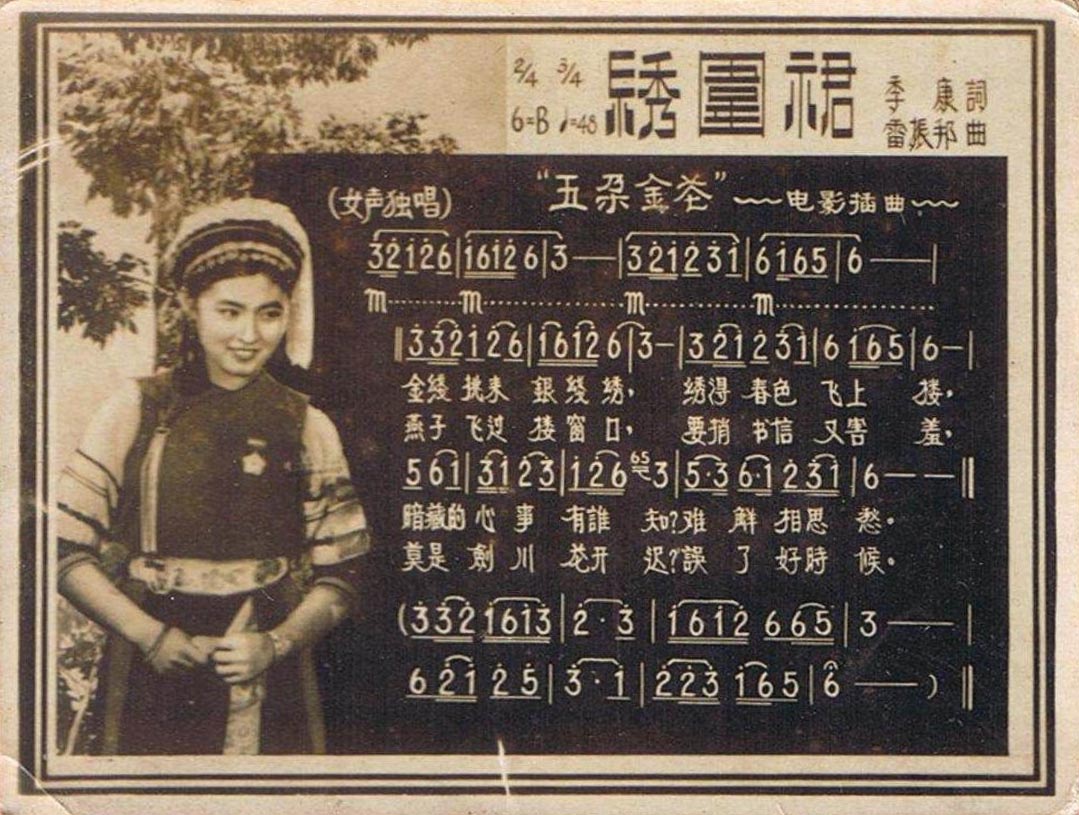 2/4 3/4 綉圍裙 季康詞
6=B ♩=48 雷振邦曲
(女声独唱) "五朵金花" 电影插曲
3 2 1 2 6 | 1 6 1 2 6 | 3 — — | 3 2 1 2 3 1 | 6 1 6 5 | 6 — — |
3 3 2 1 2 6 | 1 6 1 2 6 | 3 — | 3 2 1 2 3 1 | 6 1 6 5 | 6 — |
金綫挑来 銀綫绣, 绣得春色飞上楼,
燕子飞过楼窗口, 要捎书信又害羞,
5 6 1 | 3 1 2 3 | 1 2 6 65 3 | 5·3 6·1 2 3 1 | 6 — — ‖
暗藏的心事有誰知?难解相思愁。
莫是劍川花开迟?誤了好時候。
(3 3 2 1 6 1 3 | 2·3 | 1 6 1 2 6 6 5 | 3 — — |
6 2 1 2 5 | 3·1 | 2 2 3 1 6 5 | 6 — ) ‖